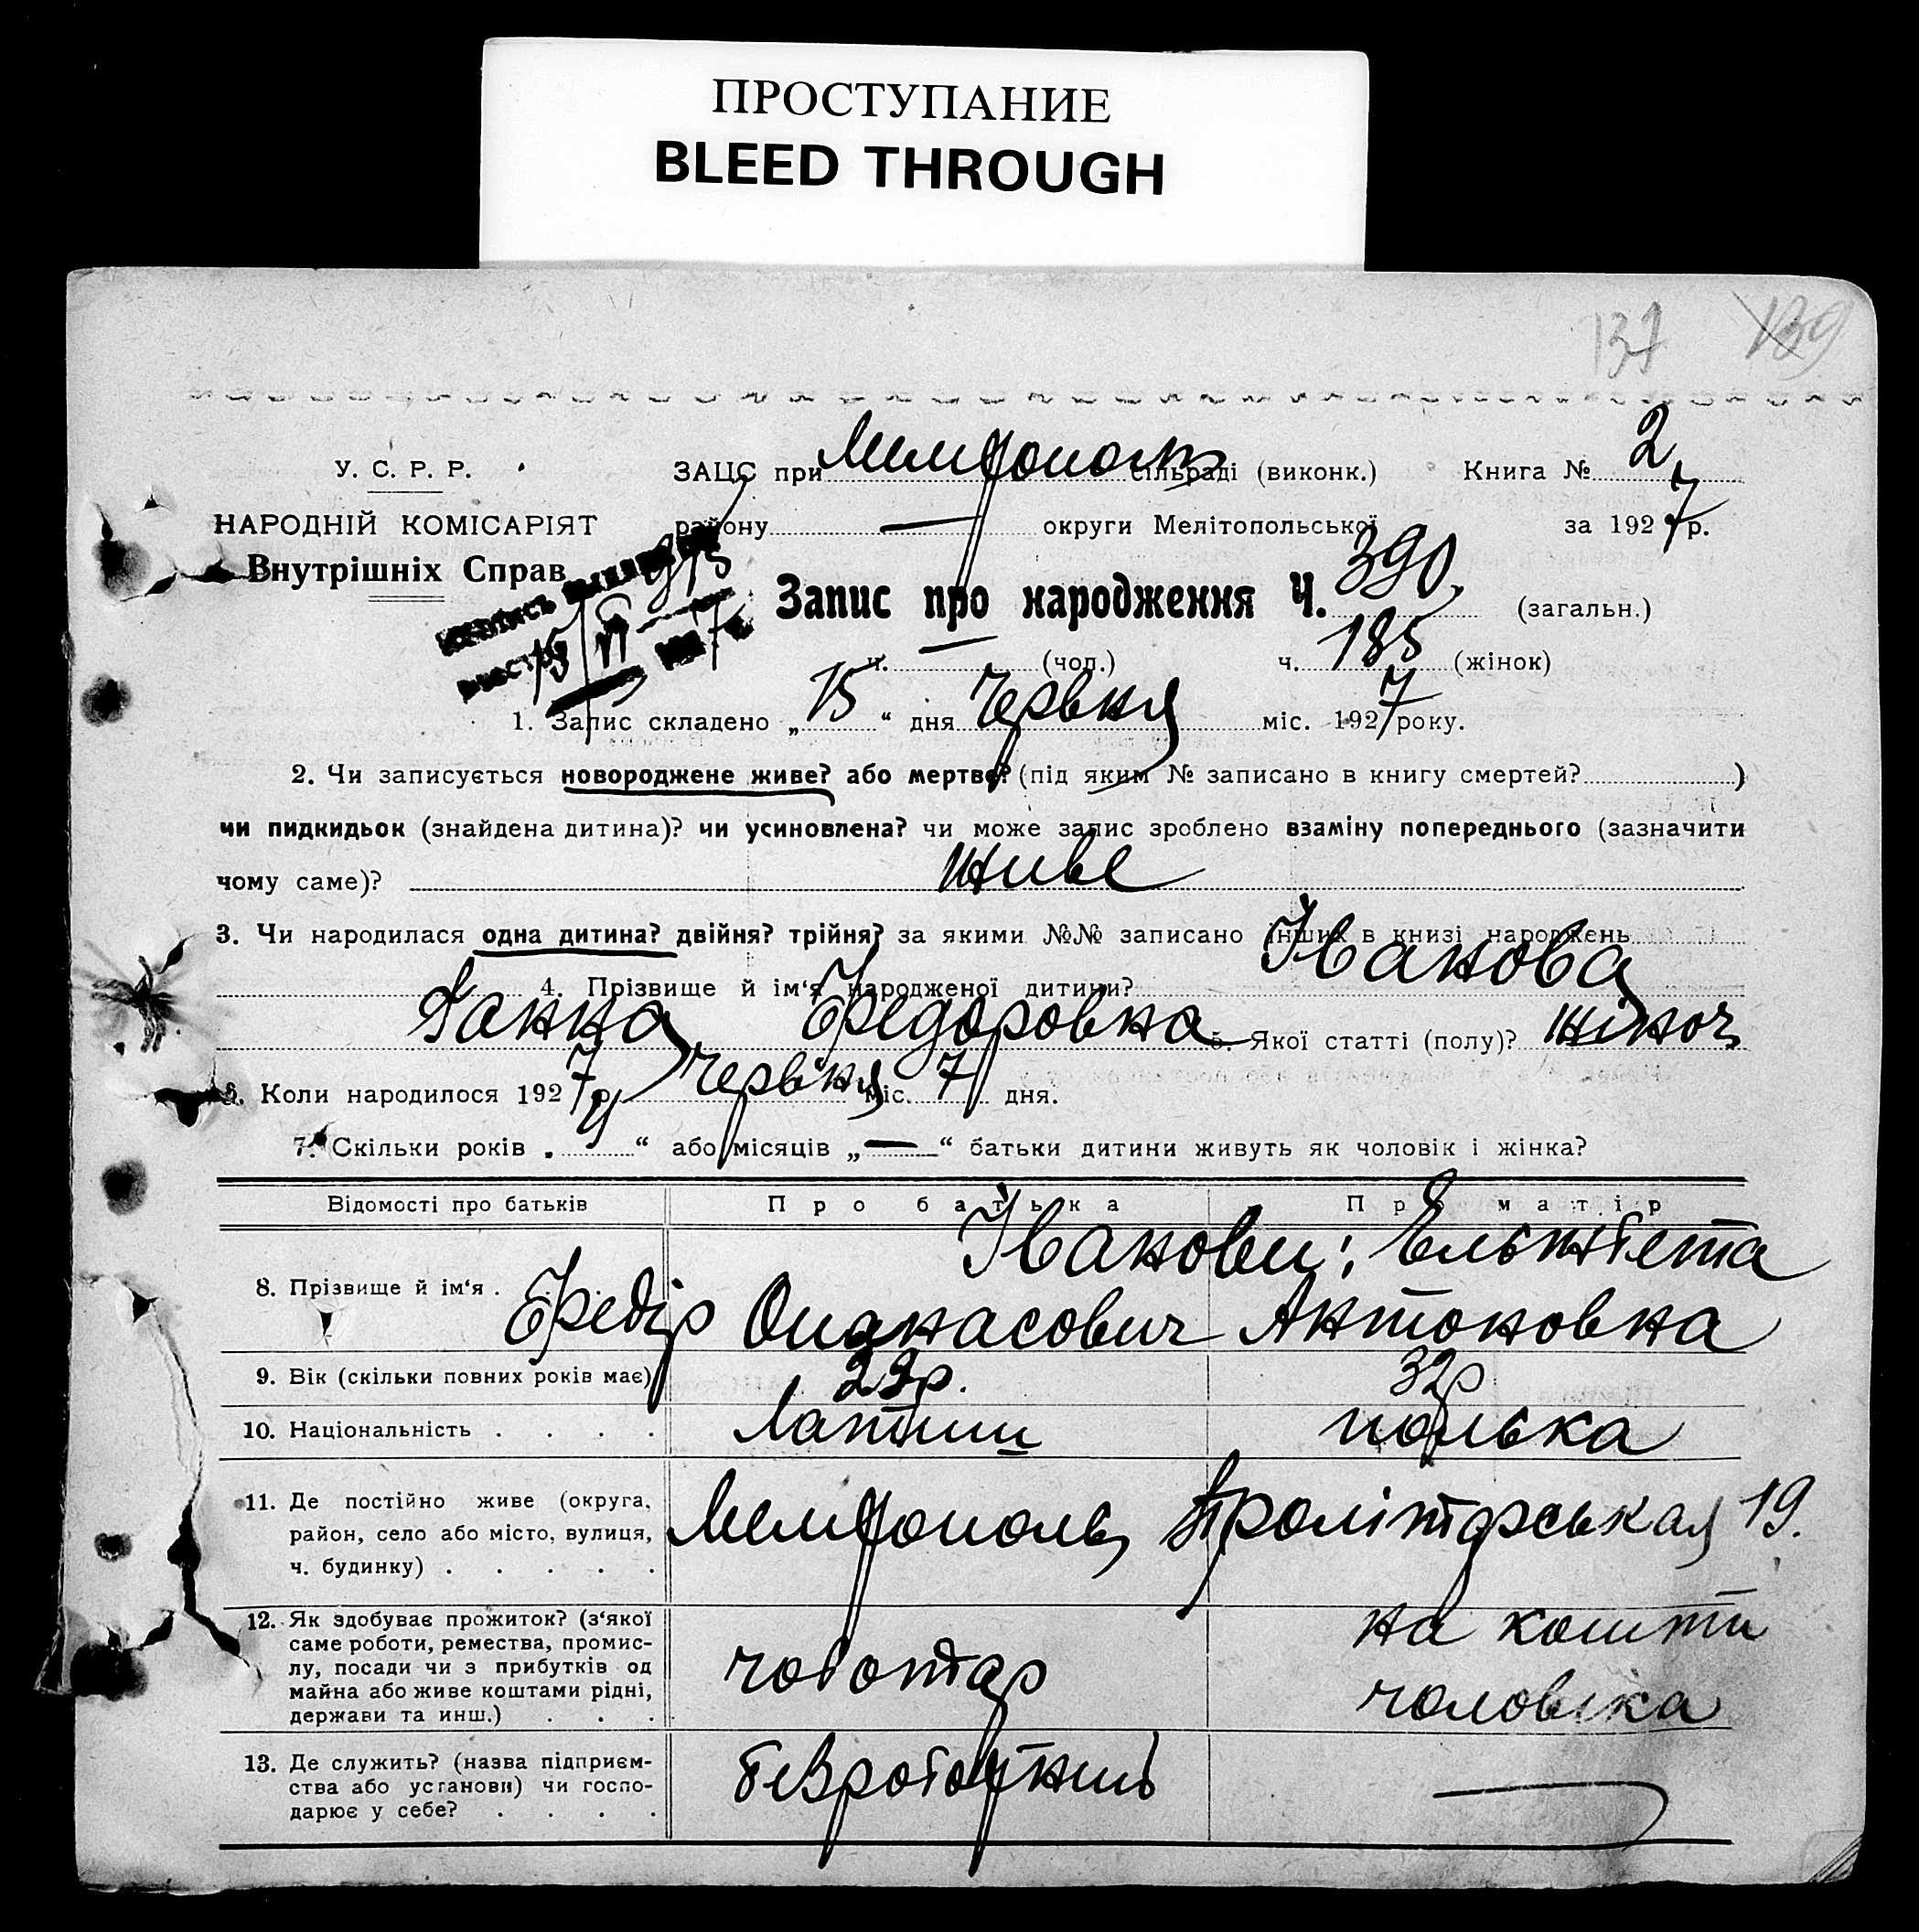 ПРОСТУПАНИЕ
BLEED THROUGH
137 139
У. С. Р. Р. ЗАЦС при Мелітополь сільраді (виконк.) Книга № 2
НАРОДНІЙ КОМІСАРІЯТ району — округи Мелітопольської за 1927 р.
Внутрішніх Справ
Запис про народження Ч. 390 (загальн.)
ч. — (чол.) ч. 185 (жінок)
1. Запис складено „15“ дня Червня міс. 1927 року.
2. Чи записується новороджене живе? або мертве? (під яким № записано в книгу смертей? )
чи пидкидьок (знайдена дитина)? чи усиновлена? чи може запис зроблено взаміну попереднього (зазначити
чому саме)? живе
3. Чи народилася одна дитина? двійня? трійня? за якими №№ записано інших в книзі народжень
4. Прізвище й ім‘я народженої дитини? Іванова
Ганна Федоровна 5. Якої статті (полу)? жіноч
6. Коли народилося 1927 р. Червня міс. 7 дня.
7. Скільки років „ “ або місяців „—“ батьки дитини живуть як чоловік і жінка?
Відомості про батьків Про батька Про матір
8. Прізвище й ім‘я . Іванови: Ельжбета
Федір Опанасович Антоновна
9. Вік (скільки повних років має) 29р. 32р
10. Національність . . . . Латиш полька
11. Де постійно живе (округа,
район, село або місто, вулиця, Мелітополь, Пролітарськая 19.
ч. будинку) . . . . .
12. Як здобуває прожиток? (з‘якої на кошти
саме роботи, ремества, промис-
лу, посади чи з прибутків од чоботар
майна або живе коштами рідні, чоловіка
держави та инш.) . . .
13. Де служить? (назва підприєм- безроботний —
ства або установи) чи госпо-
дарює у себе? . . . .